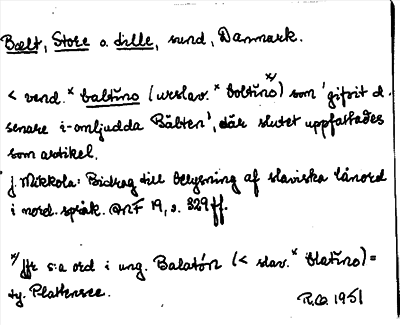 Bælt, Store o. Lille, sund, Danmark.
< vend. * baltŭno (urslav. * boltĭno */) som 'gifvit d.
senare i-omljudda Bälten', där slutet uppfattades
som artikel.
J. Mikkola: Bidrag till belysning af slaviska lånord
i nord. språk. ANF 19, s. 329 ff.
*/ Jfr s:a ord i ung. Balatón (< slav. * blatĭno) =
ty. Plattensee.
1951